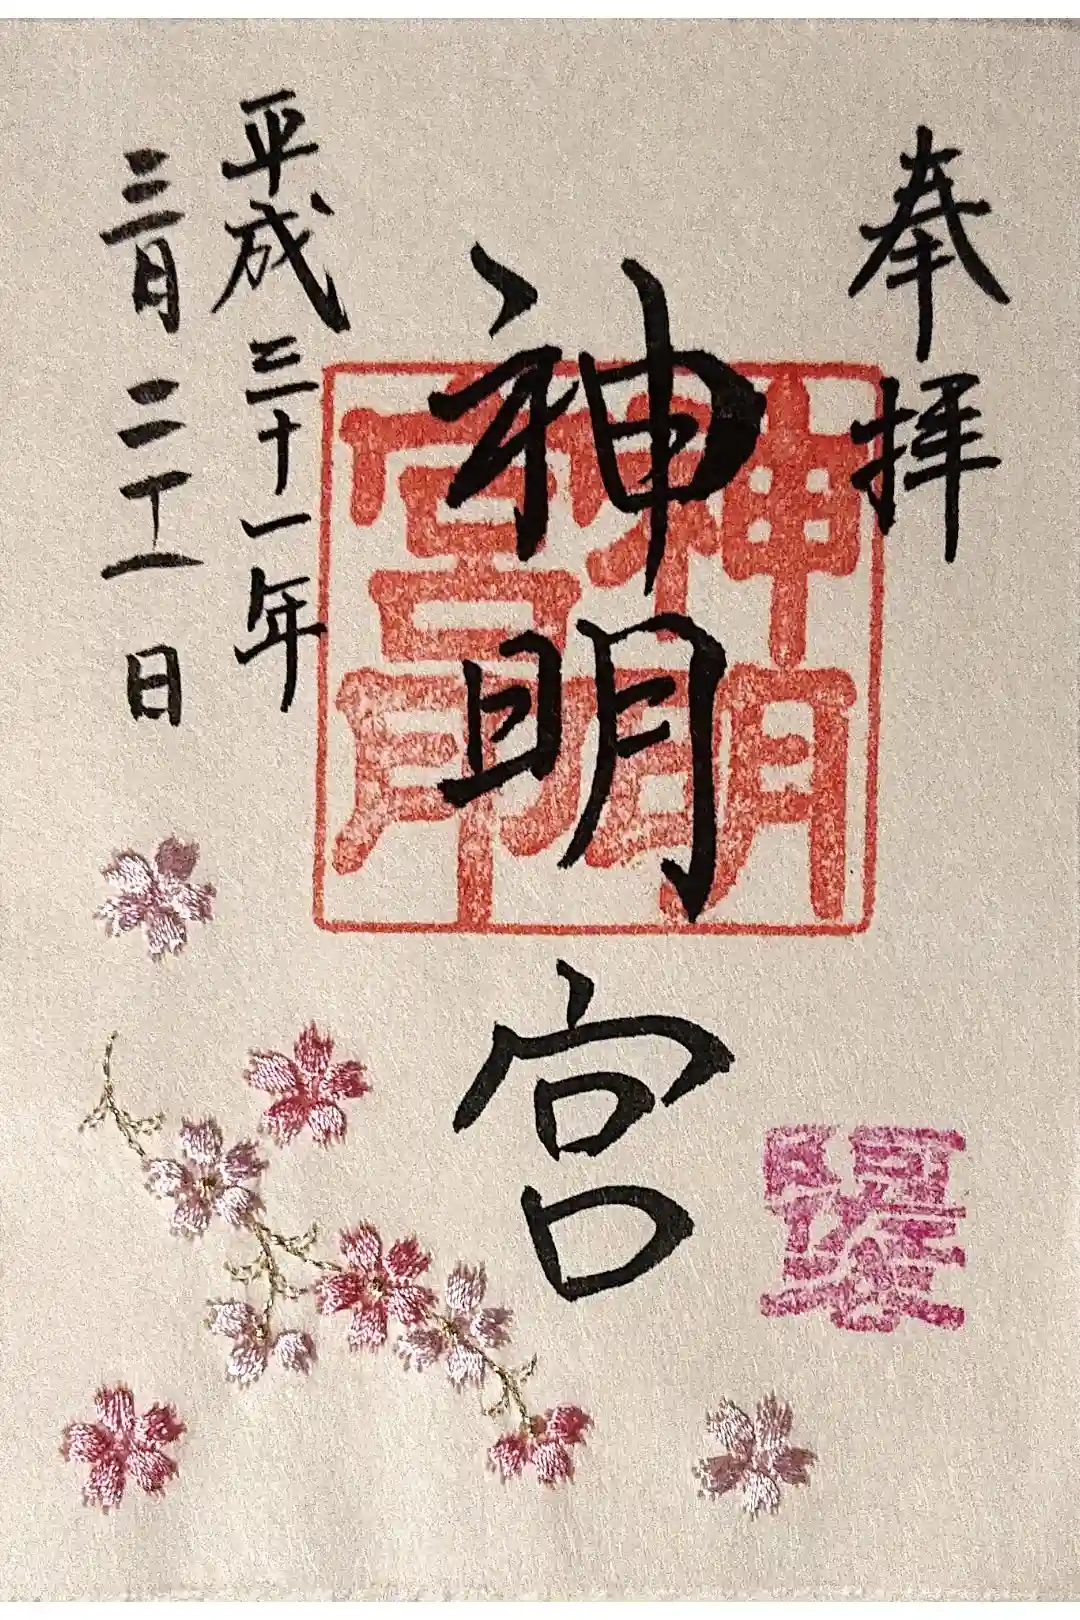 奉拝
神明宮
神明
宮印
平成三十一年
三月二十一日